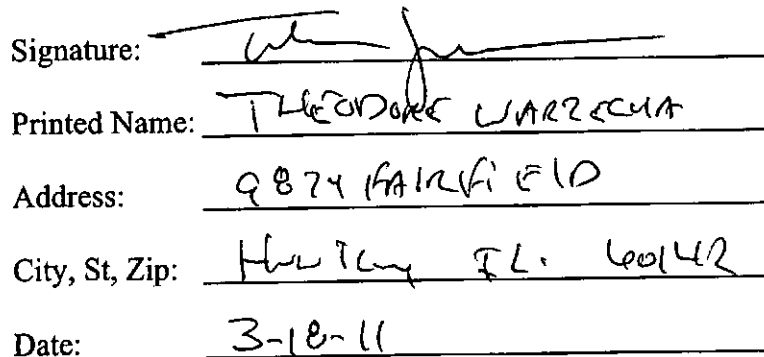 Signature:
Printed Name: THEODORE WARZECHA
Address: 9874 FAIRFIELD
City, St, Zip: Huntley IL. 60142
Date: 3-18-11